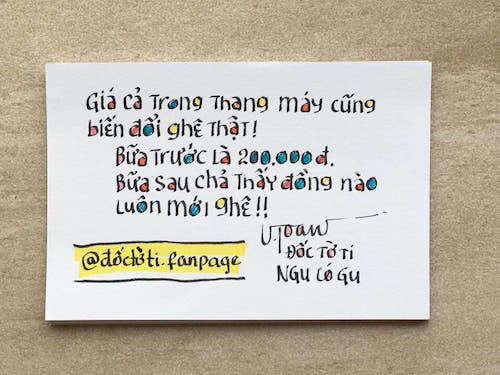 Giá cả trong thang máy cũng
biến đổi ghê thật!
Bữa trước là 200.000đ.
Bữa sau chả thấy đồng nào
luôn mới ghê!!
V.Toan
Đốc Tờ Ti
NGU CÓ GU
@đốctờti.fanpage